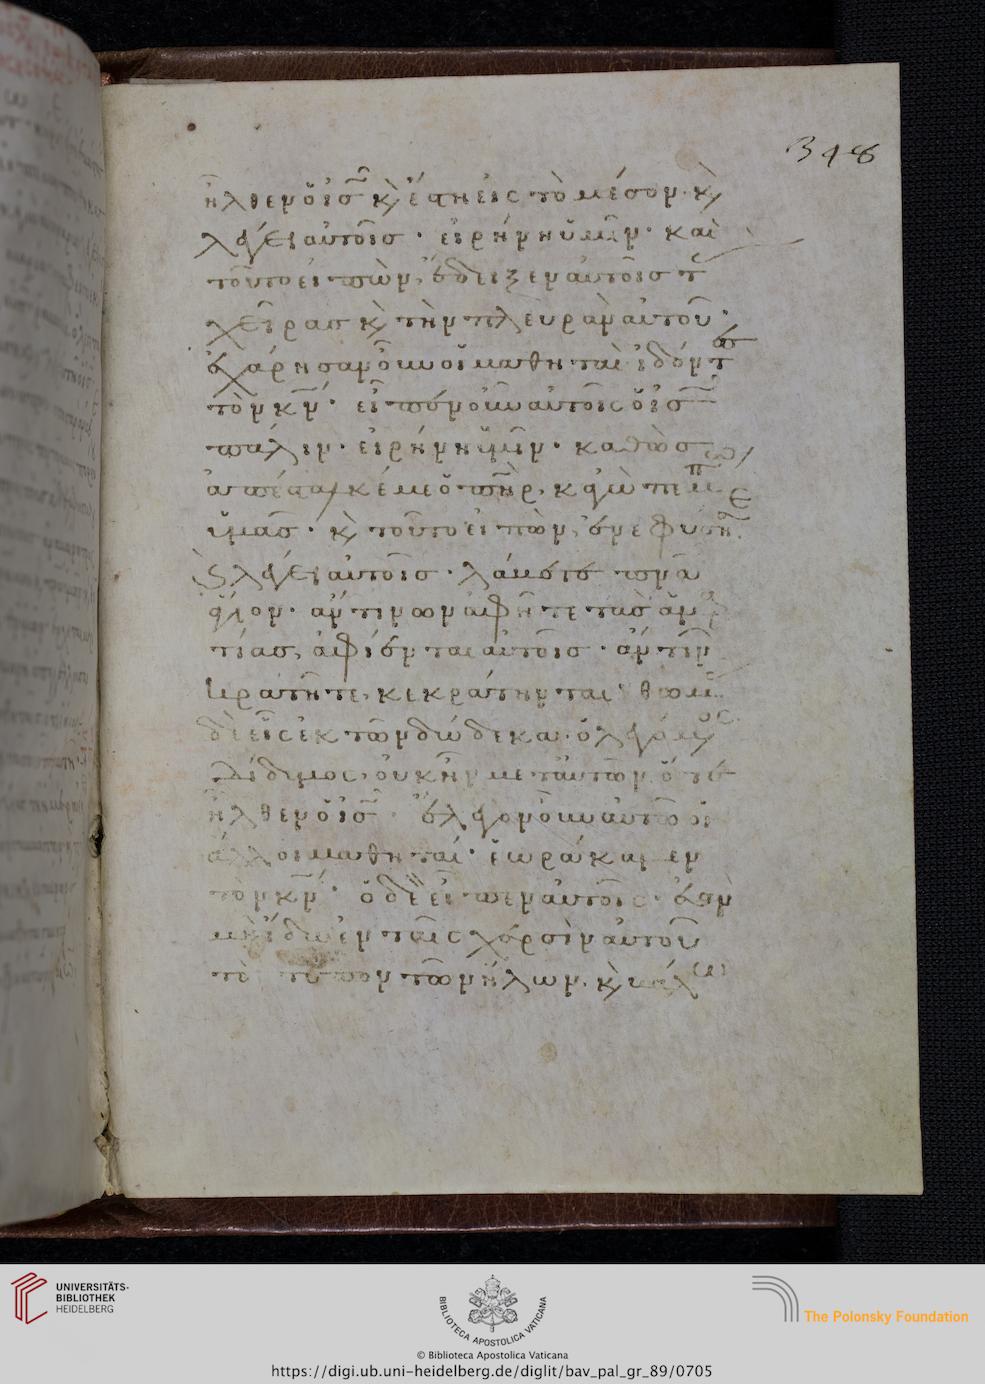 348
ἦλθεν ὁ ἰς̅ κ̀ ἔστη εἰς τὸ μέσον· κ̀
λέγει αὐτοῖς· εἰρήνη ὑμῖν· καὶ
τοῦτο εἰπὼν, ἔδειξεν αὐτοῖς τ
χεῖρας κ̀ τὴν πλευρὰν αὐτοῦ·
ἐχάρησαν οὖν οἱ μαθηταὶ ἰδόντες
τὸν κν̅· εἶπεν οὖν αὐτοῖς ὁ ἰς̅
πάλιν· εἰρήνη ὑμῖν· καθὼς
ἀπέσταλκέ με ὁ πηρ̅, κἀγὼ πέμπω
ὑμᾶς· κ̀ τοῦτο εἰπὼν, ἐνεφύση
κ̀ λέγει αὐτοῖς· λάβετε πνα̅
ἅγιον· ἄν τινων ἀφῆτε τὰς ἁμαρ
τίας, ἀφίενται αὐτοῖς· ἄν τινων
κρατῆτε, κεκράτηνται· θωμᾶς
δὲ εἷς ἐκ τῶν δώδεκα· ὁ λεγόμενος
δίδυμος, οὐκ ἦν μετ' αὐτῶν ὅτε
ἦλθεν ὁ ἰς̅· ἔλεγον οὖν αὐτῶ οἱ
ἄλλοι μαθηταί· ἑωράκαμεν
τὸν κν̅· ὁ δὲ εἶπεν αὐτοῖς· ἐὰν
μὴ ἴδω ἐν ταῖς χερσὶν αὐτοῦ
τὸν τύπον τῶν ἥλων, κ̀ βάλω
UNIVERSITÄTS-
BIBLIOTHEK
HEIDELBERG
BIBLIOTECA APOSTOLICA VATICANA
The Polonsky Foundation
© Biblioteca Apostolica Vaticana
https://digi.ub.uni-heidelberg.de/diglit/bav_pal_gr_89/0705